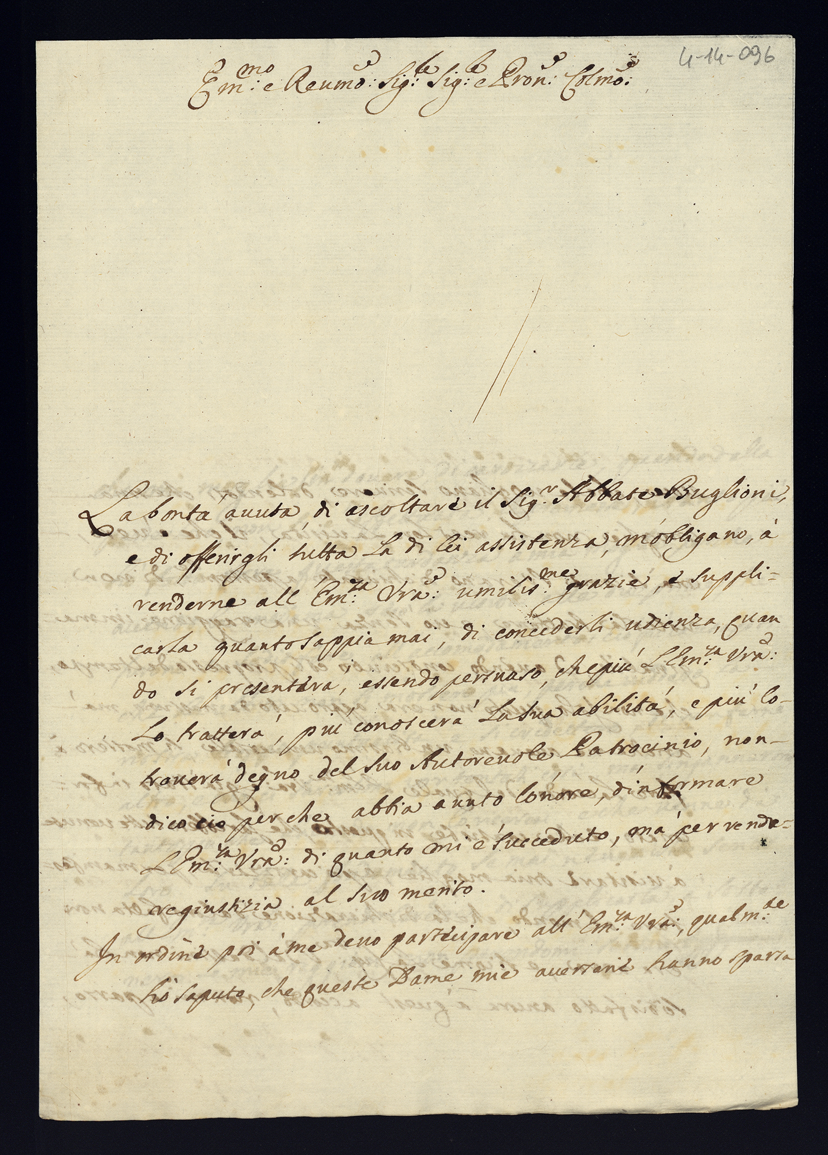 4-14-096
Em:mo e Reumo: Sig:re Sig:re e Pron: Colmo:
La bontà auuta, di ascoltare il Sig:r Abbate Buglioni,
e di offerirgli tutta La di lei assistenza, m'obligano, à
renderne all' Em:za Vra: umilis:me grazie, e suppli=
carla quanto sappia mai, di concederli udienza, quan
do si presenterà, essendo persuaso, che più L'Em:za Vra:
Lo tratterà, più conoscerà La sua abilità, e più lo
trouerà degno del suo Autoreuole Patrocinio, non
dico cio perche abbia auuto l'onore, d'informare
L'Em:za Vra: di quanto mi è succeduto, mà per rende=
re giustizia al suo merito.
In ordine poi à me deuo partecipare all' Em:za Vra:, qualm:te
hò saputo, che queste Dame mie auuersarie hanno sparsa